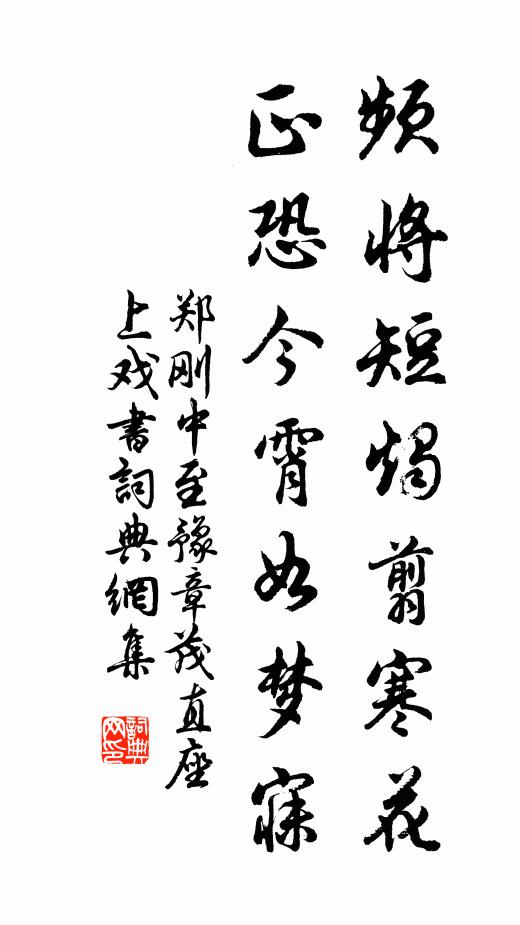 频将短烛翦寒花
正恐今霄如梦寐
郑刚中至豫章茂直座
上戏書詞典網集
詞典
网印